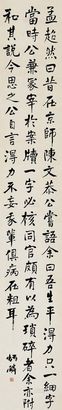 孟超然曰昔在京師陳文恭公嘗語余曰吾生平得力只一細字
當時公兼冢宰於案牘一字必核同官頗有以為瑣碎者余亦附
和其說今思之公自言得力不妄吾輩俱病在粗耳